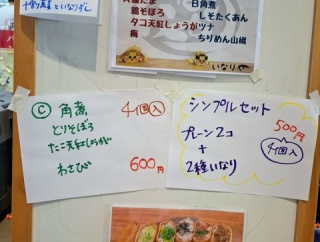 といなりずし
鶏そぼろ
タコ天紅しょうが
梅
角煮
しそたくあん
ツナ
ちりめん山椒
いなりや
Ⓒ 角煮 4個入
とりそぼろ
たこ天紅しょうが
わさび
600円
シンプルセット
プレーン2コ
+
2種いなり
500円
4個入